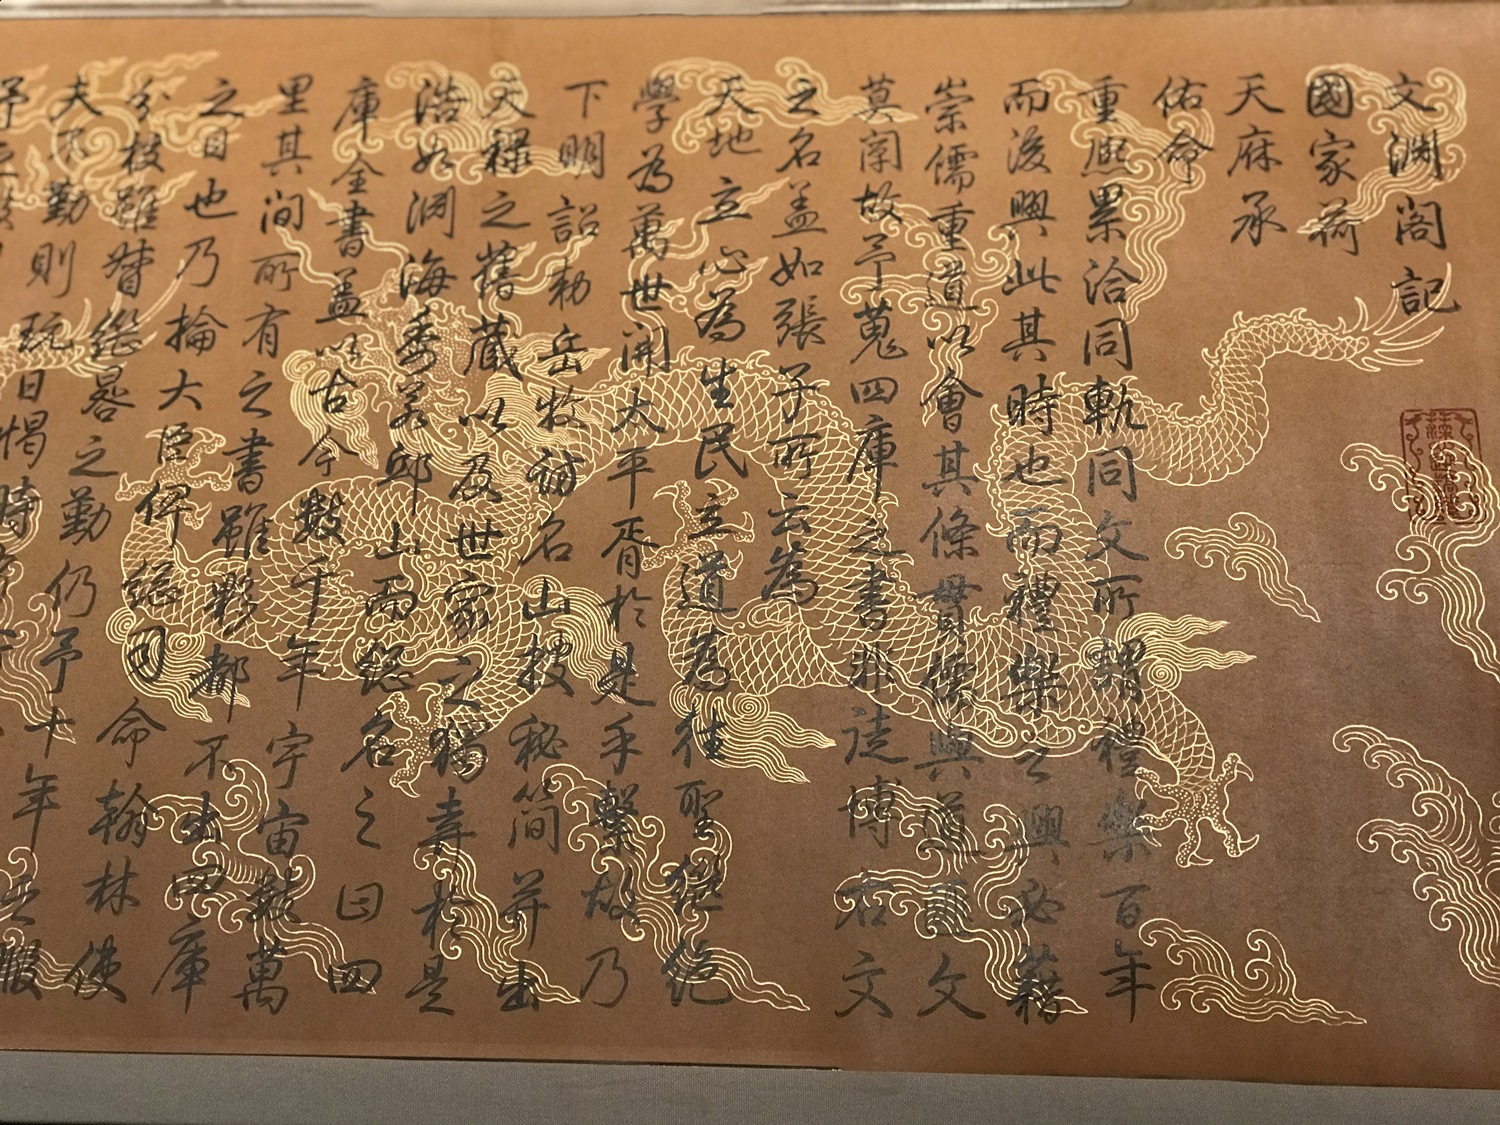 文淵閣記
國家荷
天庥承
佑命
重熙累洽同軌同文所謂禮樂百年
而後興此其時也而禮樂之興必藉
崇儒重道以會其條貫儒與道匪文
莫闡故予蒐四庫之書非徒博右文
之名蓋如張子所云為
天地立心為生民立道為往聖繼絕
學為萬世開太平胥於是乎繫故乃
下明詔勅岳牧訪名山搜秘簡并出
天祿之舊藏以及世家之獨於是
浩如渊海委若邱山而總名之曰四
庫全書蓋以古今數千年宇宙數萬
里其間所有之書雖夥都不出四庫
之目也乃掄大臣俾總司命翰林使
分校雖督繼晷之勤仍予十年之暇
夫不勤則玩日愒時